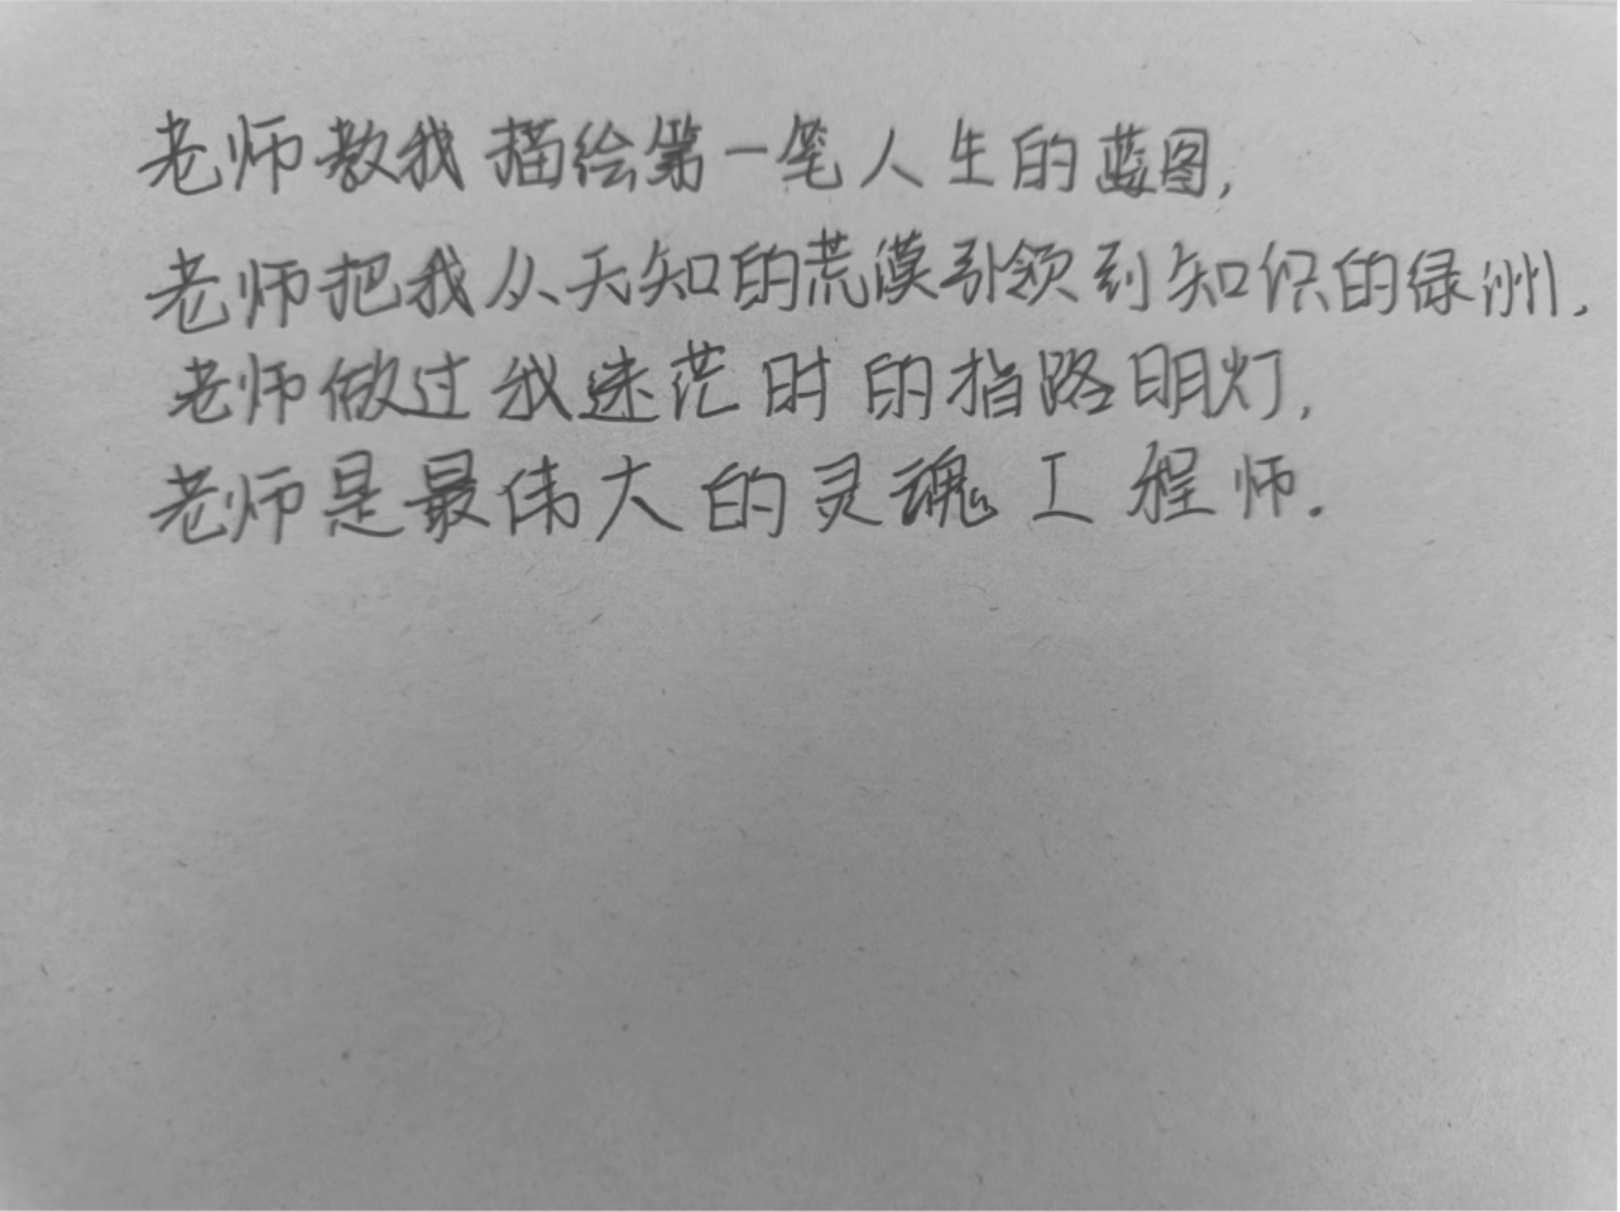 老师教我描绘第一笔人生的蓝图,
老师把我从无知的荒漠引领到知识的绿洲,
老师做过我迷茫时的指路明灯,
老师是最伟大的灵魂工程师.